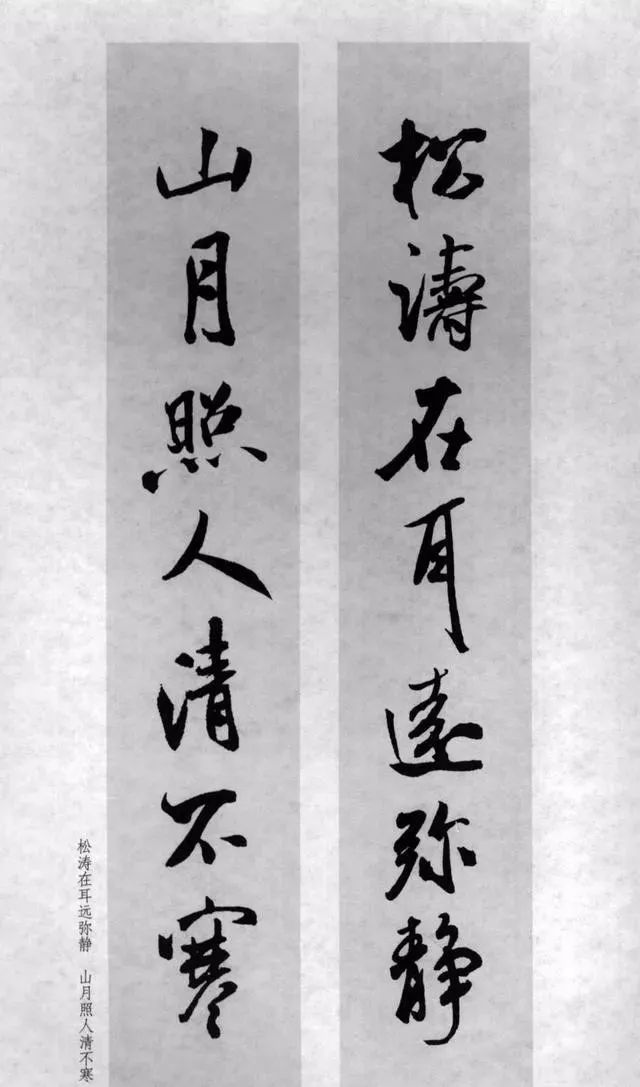 松濤在耳遠弥静
山月照人清不寒
松涛在耳远弥静　山月照人清不寒